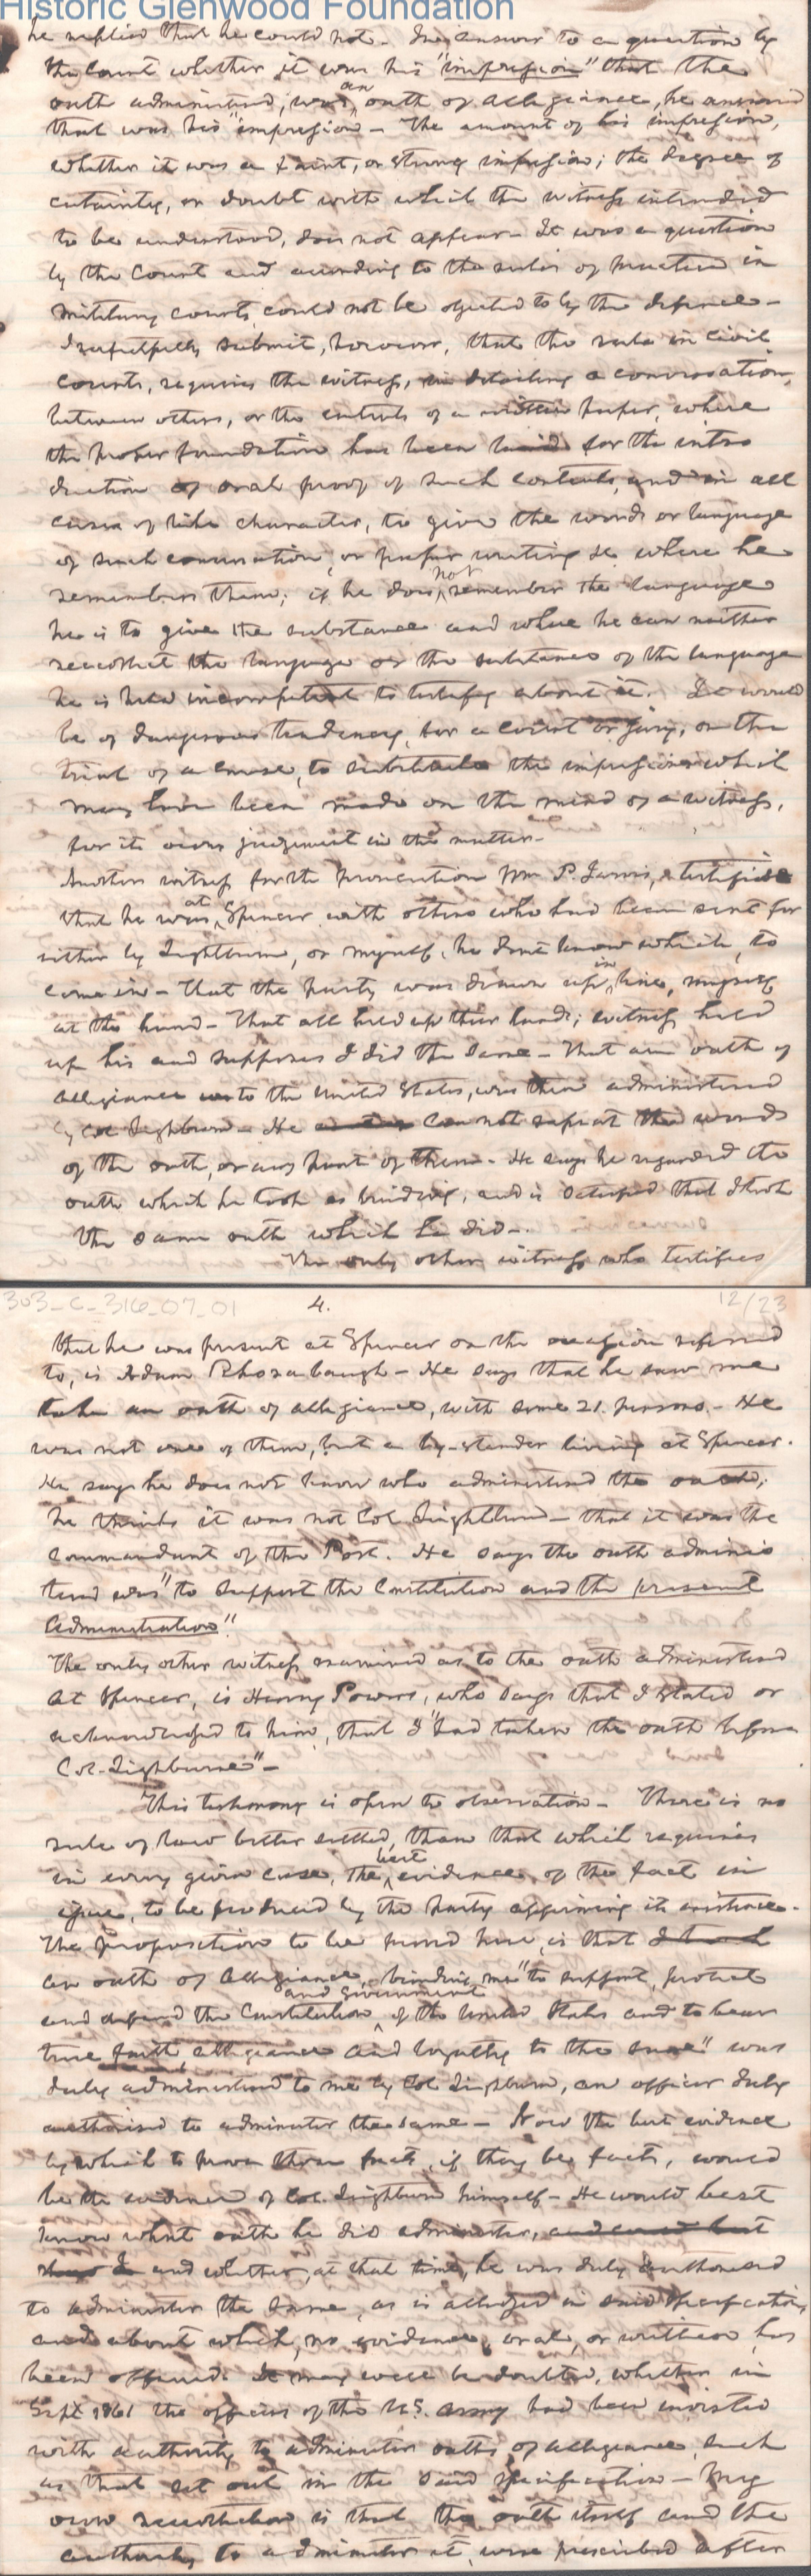 Historic Glenwood Foundation
he replied that he could not. In answer to a question by
the Court whether it was his "impression" that the
oath administered, was an oath of allegiance, he answered
that was his "impression" - The amount of his impression,
whether it was a faint, or strong impression; the degree of
certainty, or doubt with which the witness intended
to be understood, does not appear - It was a question
by the Court and according to the rules of practice in
military courts could not be objected to by the defence -
I respectfully submit, however, that the rule in civil
courts, requires the witness, in detailing a conversation,
between others, or the contents of a written paper, where
the proper foundation has been laid for the intro
duction of oral proof of such contents, and in all
cases of like character, to give the words or language
of such conversation, or paper writing &c where he
remembers them; if he does not remember the language
he is to give the substance and where he can neither
recollect the language or the substance of the language
he is held incompetent to testify about it. It would
be of dangerous tendency, for a court or jury, on the
trial of a cause, to substitute the impressions which
may have been made on the mind of a witness,
for its own judgement in the matter -
Another witness for the prosecution Wm P. Jarvis, testifies
that he was at Spencer with others who had been sent for
either by Lightburn, or myself, he dont know which, to
come in - That the party was drawn up in line, myself
at the head - That all held up their hands; witness held
up his and supposes I did the same - That an oath of
allegiance to the United States, was then administered
by Col Lightburn - He can not repeat the words
of the oath, or any part of them - He says he regarded the
oath which he took as binding, and is satisfied that I took
the same oath which he did -
The only other witness who testifies
303-C-316-07-01
4.
12/23
that he was present at Spencer on the occasion referred
to, is Adam Rhosabaugh - He says that he saw me
take an oath of allegiance, with some 21 persons - He
was not one of them, but a by-stander living at Spencer.
He says he does not know who administered the oath;
he thinks it was not Col Lightburn - that it was the
commandant of the Post. He says the oath adminis
tered was "to support the Constitution and the present
administration".
The only other witness examined as to the oath administered
at Spencer, is Henry Powers, who says that I stated or
acknowledged to him, that I "had taken the oath before
Col. Lightburne" -
This testimony is open to observation - There is no
rule of law better settled, than that which requires
in every given case, the best evidence, of the fact in
issue, to be produced by the party affirming its existence.
The proposition to be proved here, is that I took
an oath of allegiance, binding me "to support, protect
and defend the Constitution and Government of the United States and to bear
true faith, allegiance and loyalty to the same" was
duly administered to me by Col Lightburn, an officer duly
authorised to administer the same - Now the best evidence
by which to prove these facts, if they be facts, would
be the evidence of Col. Lightburn himself - He would best
know what oath he did administer,
and whether, at that time, he was duly authorised
to administer the same, as is alleged in said specification,
and about which, no evidence, oral, or written has
been offered. It may well be doubted, whether in
Sept 1861 the officers of the U.S. army had been invested
with authority to administer oaths of allegiance, such
as that set out in the said specification - My
own recollection is that the oath itself and the
authority to administer it, were prescribed after